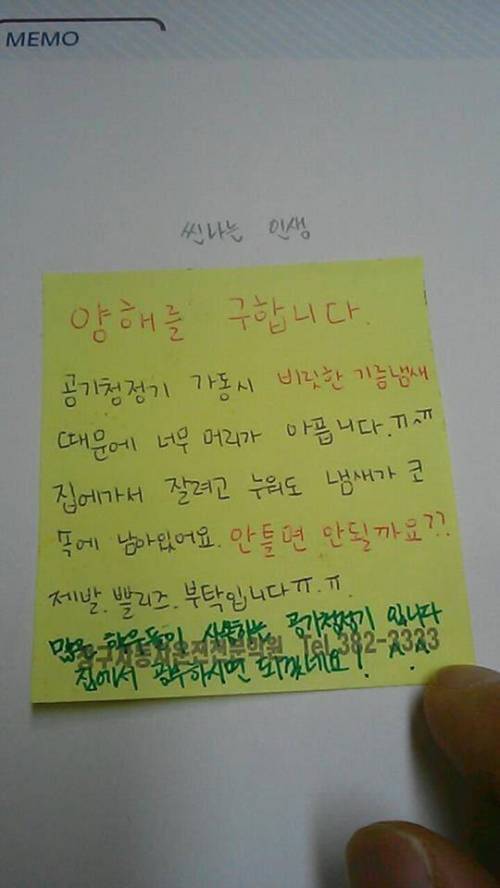 MEMO
씬나는 인생
양해를 구합니다.
공기청정기 가동시 비릿한 기름냄새
때문에 너무 머리가 아픕니다.ㅠㅅㅠ
집에가서 잘려고 누워도 냄새가 코
속에 남아있어요. 안틀면 안될까요??
제발. 쁠리즈. 부탁입니다ㅠ.ㅠ.
많은 학우들이 사용하는 공기청정기 입니다
Tel.382-3333
집에서 공부하시면 되겠네요! ^.^